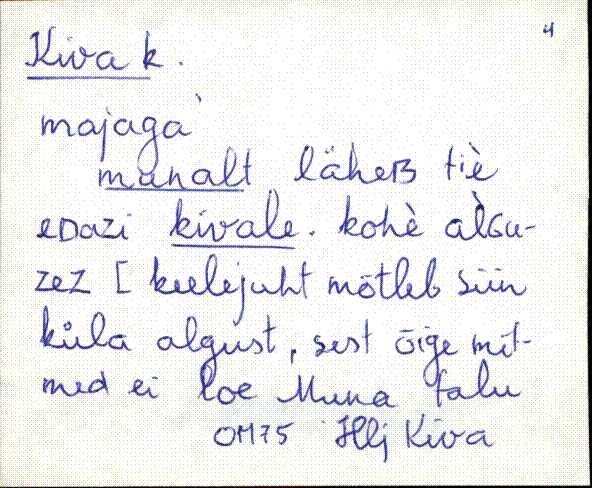 4
Kiva k.
majaga`
munalt läheʙ tiè
eᴅazi kivale. kohè alGu-
zez [ keelejuht mõtleb siin
küla algust, sest õige mit-
med ei loe Muna talu
OM75 Hlj Kiva